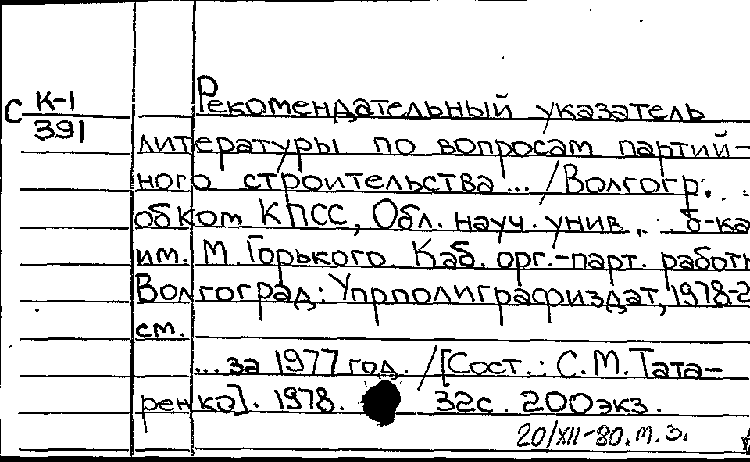 С К-1
391
Рекомендательный указатель
литературы по вопросам партий-
ного строительства ... /Волгогр.
обком КПСС, Обл. науч. унив. б-ка
им. М. Горького. Каб. орг.-парт. работ
Волгоград: Упрполиграфиздат, 1978-2
см.
... за 1977 год. /[Сост.: С.М. Тата-
ренко]. 1978. 32с. 200экз.
20/XII-80. м.з.